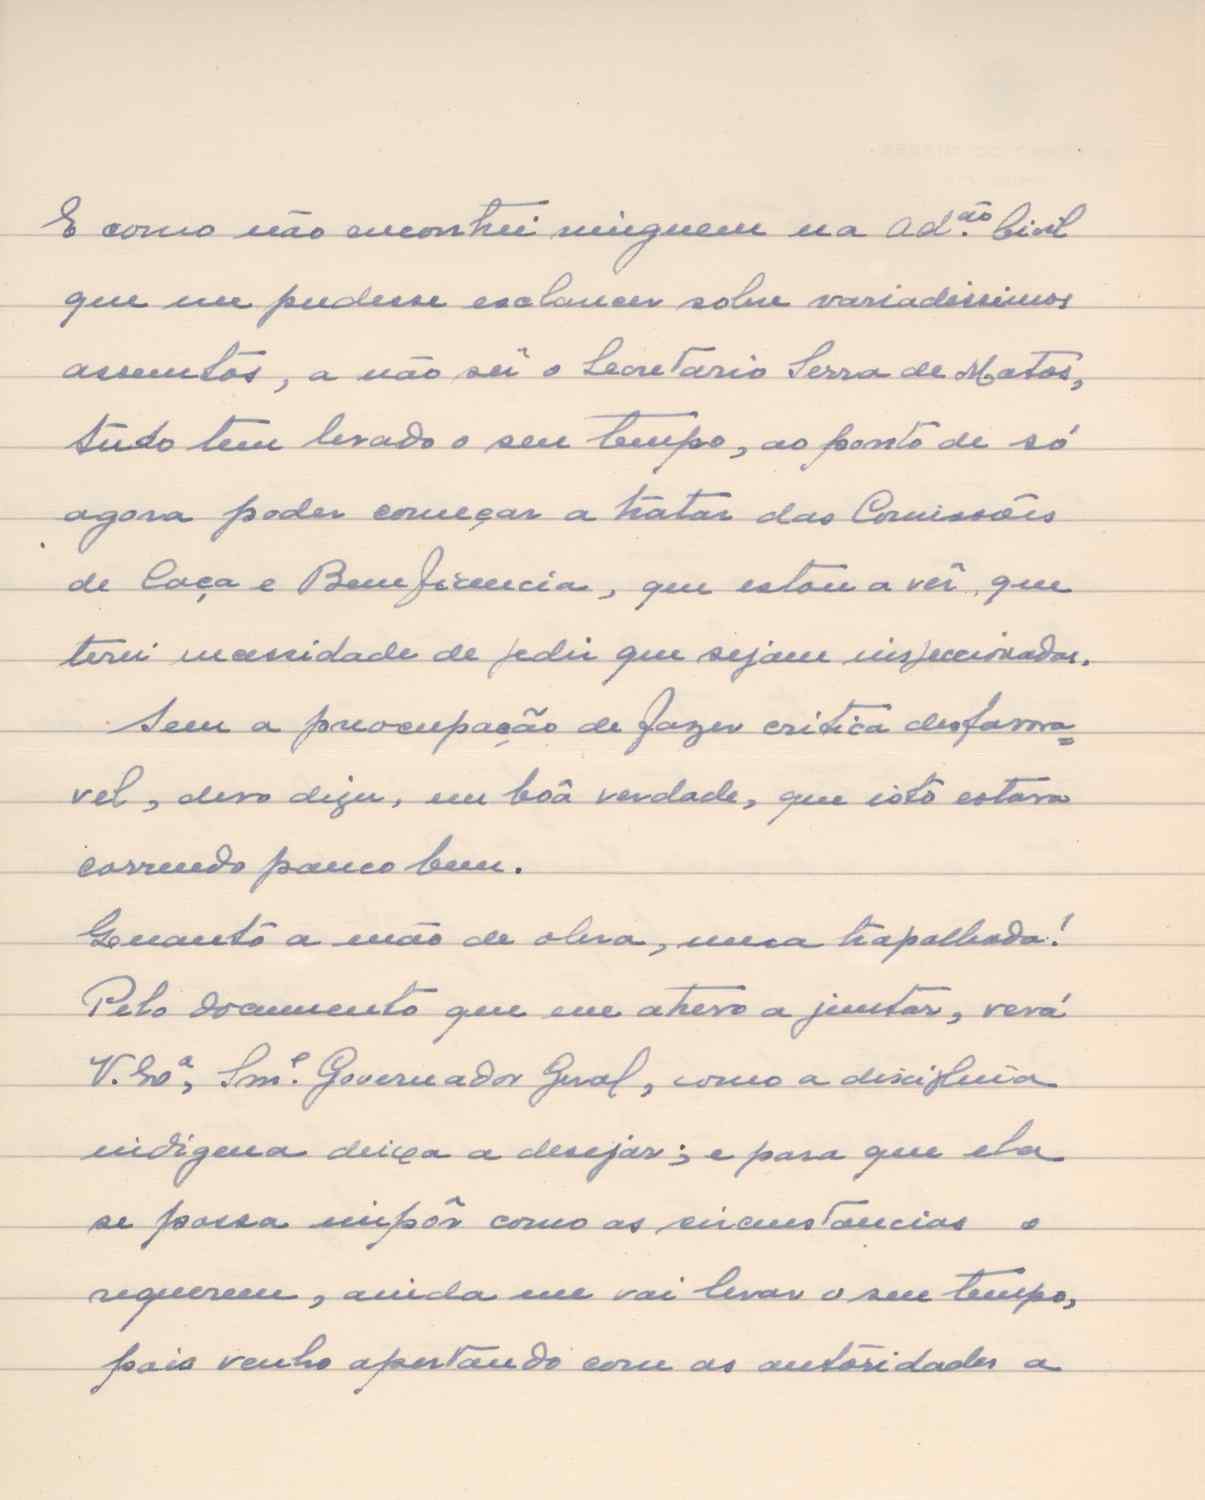 E como não encontrei ninguem na Ad.ão Civil
que me pudesse esclarecer sobre variadissimos
assuntos, a não sêr o Secretario Serra de Matos,
tudo tem levado o seu tempo, ao ponto de só
agora poder começar a tratar das Comissões
de Caça e Beneficencia, que estou a vêr que
terei necessidade de pedir que sejam inspeccionadas.
Sem a preocupação de fazer critica desfavora=
vel, devo dizer, em boa verdade, que isto estava
correndo pouco bem.
Quanto a mão de obra, uma trapalhada!
Pelo documento que me atrevo a juntar, verá
V. Exª, Snr. Governador Geral, como a disciplina
indigena deixa a desejar; e para que ela
se possa impôr como as circunstancias o
requerem, ainda me vai levar o seu tempo,
pois venho apertando com as autoridades a